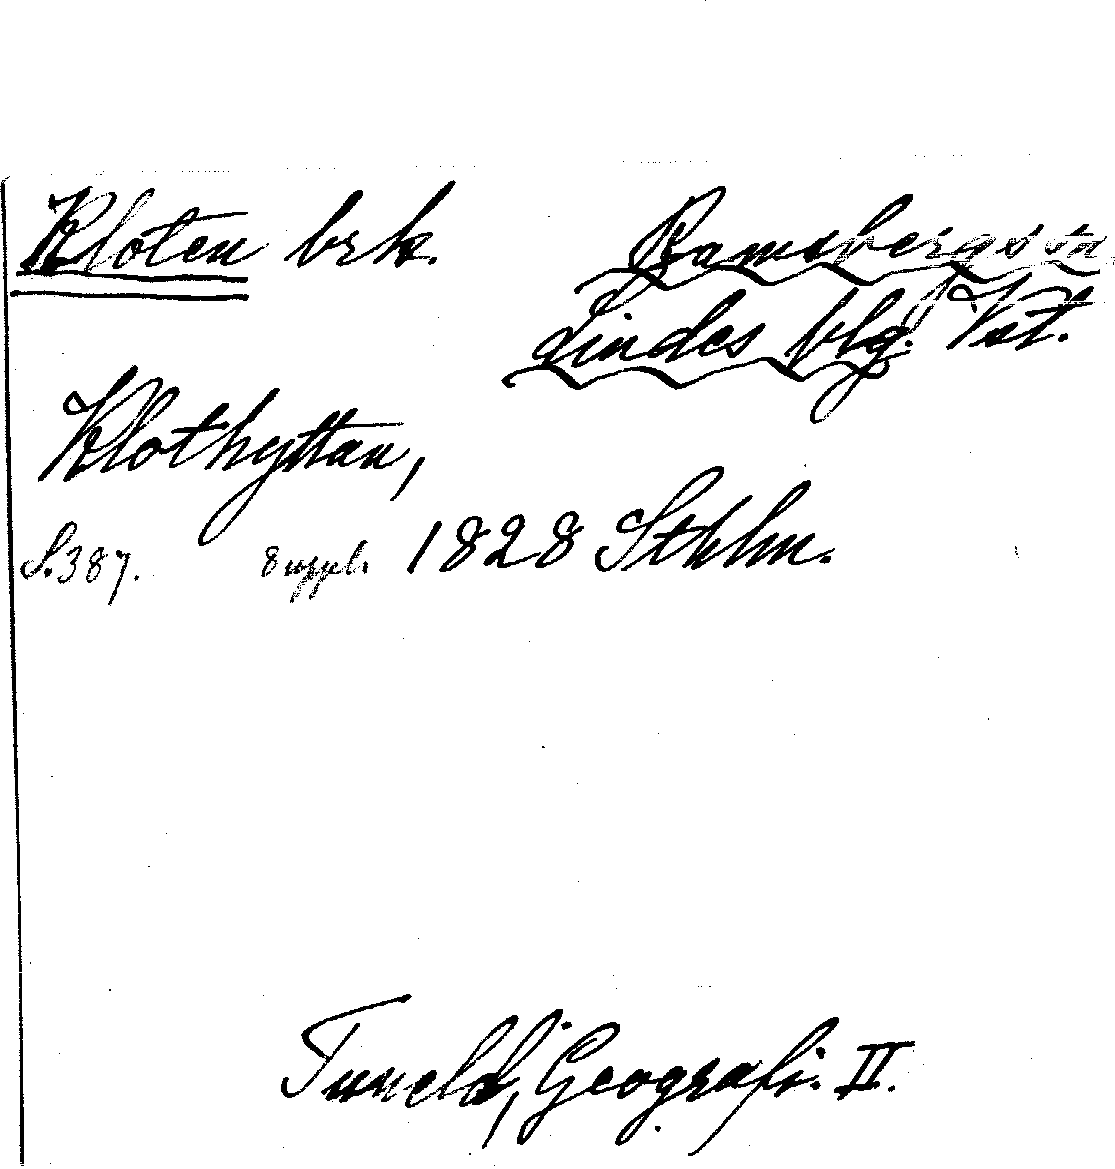 Kloten brk. Ramsbergs sn
Lindes blg. Vst.
Klothyttan,
S. 387. Suppl. 1828 Sthlm.
Tuneld, Geografi. II.